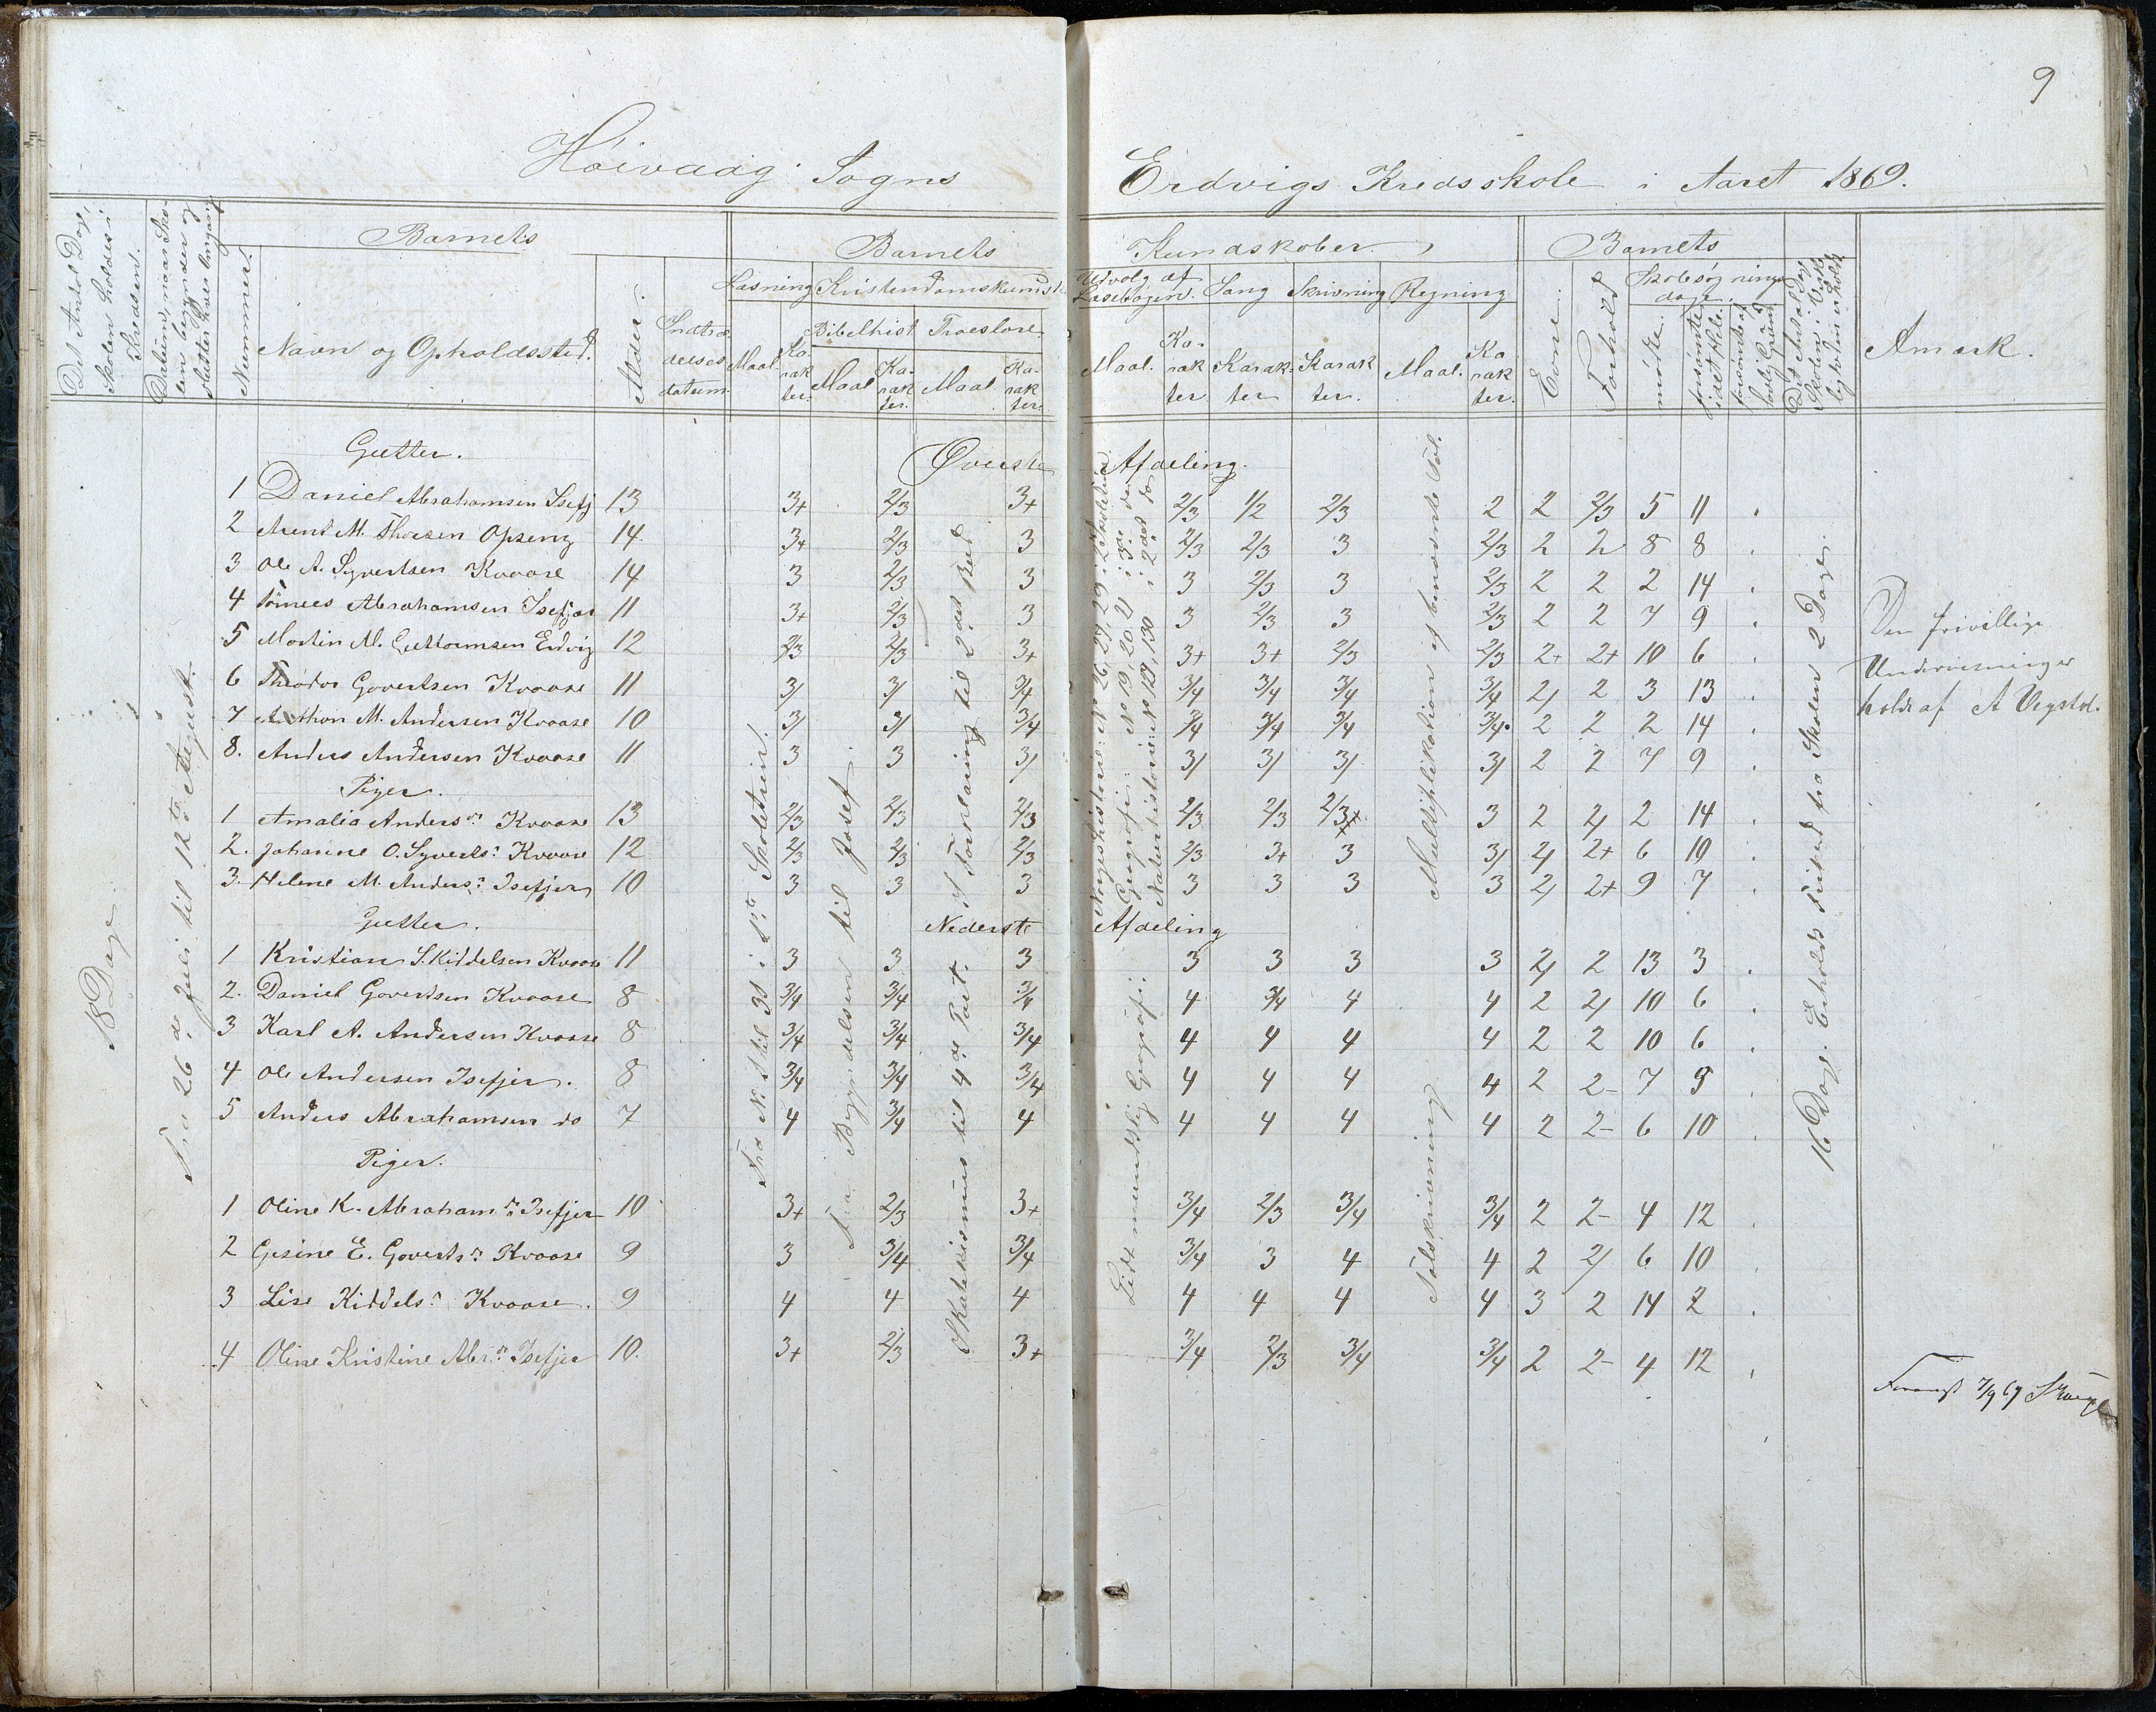 9
Høivaag Sogns Erdvigs Kredsskole i Aaret 1869.
Det Antal Dage, Skolen holdes i Kredsen.
Datum, naar Skolen begynder og slutter hver Omgang
Barnets
Nummer.
Navn og Opholdssted.
Alder.
Indtrædelsesdatum.
Barnets Kundskaber.
Læsning Kristendomskundsk
Maal. Karakter.
Bibelhist Troeslære
Maal Karakter. Maal. Karakter.
Udvalg af Læsebogen. Sang Skrivning Regning
Maal. Karakter Karakter Karakter. Maal. Karakter.
Barnets
Evne.
Forhold
Skolesøgningsdage.
mødte.
forsømte i det Hele.
forsømte af lovlig Grund
Det Antal Dage Skolen i Virkeligheden er holdt
Anmærk.
18 Dage
Fra 26de Juli til 12te August.
Fra N: 1 til 31 i 1ste Skoletrin.
Fra Begyndelsen til Josef.
Øverste Afdeling.
Gutter.
1 Daniel Abrahamsen Isefj 13 3+ 2/3 3+ 2/3 1/2 2/3 2 2 2/3 5 11 .
2 Arent M. Thorsen Opseng 14. 3+ 2/3 3 2/3 2/3 3 2/3 2 2 8 8 .
3 Ole A. Syvertsen Kvaase 14 3 2/3 3 3 2/3 3 2/3 2 2 2 14 .
4 Tønnes Abrahamsen Isefjær 11 3+ 2/3 3 3 2/3 3 2/3 2 2 7 9 .
5 Martin M. Guttormsen Erdvig 12 2/3 2/3 3+ 3+ 3+ 2/3 2/3 2+ 2+ 10 6 .
6 Theodor Govertsen Kvaase 11 3/ 3/ 3/4 3/4 3/4 3/4 3/4 2/ 2 3 13 .
7 Anthon M. Andersen Kvaase 10 3/ 3/ 3/4 3/4 3/4 3/4 3/4 2 2 2 14 .
8. Anders Andersen Kvaase 11 3 3 3/ 3/ 3/ 3/ 3/ 2 2 7 9 .
Piger.
1 Amalia Andersn Kvaase 13 2/3 2/3 2/3 2/3 2/3 2/3+ 3 2 2/ 2 14 .
2. Johanne O. Syverts: Kvaase 12 2/3 2/3 2/3 2/3 3+ 3 3/ 2/ 2+ 6 10 .
3. Helene M. Anders: Isefjær 10 3 3 3 3 3 3 3 2/ 2+ 9 7 .
Af Forklaring til 2det Bud
Norgeshistorie: No 26, 27, 29 i 2 Skoletrin.
Geografi: No 19, 20, 21 i 3die do
Naturhistorie: No 129, 130 i 2det do
Multiplikation af benævnte Tal.
Nederste Afdeling
Gutter.
1 Kristian S. Kiddelsen Kvaase 11 3 3 3 3 3 3 3 2/ 2 13 3 .
2. Daniel Govertsen Kvaase 8 3/4 3/4 3/4 4 3/4 4 4 2 2/ 10 6 .
3 Karl A. Andersen Kvaase 8 3/4 3/4 3/4 4 4 4 4 2 2 10 6 .
4 Ole Andersen Isefjær. 8 3/4 3/4 3/4 4 4 4 4 2 2- 7 9 .
5 Anders Abrahamsen do 7 4 3/4 4 4 4 4 4 2 2- 6 10 .
Piger.
1 Oline K. Abrahamsn Isefjær 10 3+ 2/3 3+ 3/4 2/3 3/4 3/4 2 2- 4 12 .
2 Gesine E. Govertsn Kvaase 9 3 3/4 3/4 3/4 3 4 4 2 2/ 6 10 .
3 Lise Kiddelsn Kvaase. 9 4 4 4 4 4 4 4 3 2 14 2 .
4 Oline Kristine Abrn Isefjær 10. 3+ 2/3 3+ 3/4 2/3 3/4 3/4 2 2- 4 12 .
Af Katekismus til 4de Part.
Lidt mundtlig Geografi.
Talskrivning
16 Dage. Erholdt Fritid fra Skolen 2 Dage.
Den frivillige
Undervisning er
holdt af A Vegstøl.
7/9 69